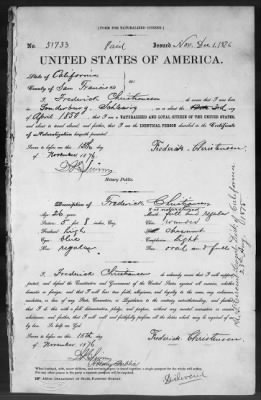 [FORM FOR NATURALIZED CITIZEN.]
No. 51733 Paid Issued Nov. Dec 1, 1876
UNITED STATES OF AMERICA.
State of California
County of San Francisco
I, Frederick Christiansen do swear that I was born
in Sonderburg, Schleswig on or about the day
of April 1850; that I am a NATURALIZED AND LOYAL CITIZEN OF THE UNITED STATES,
and about to travel abroad; and further, that I am the IDENTICAL PERSON described in the Certificate
of Naturalization herewith presented.
Sworn to before me this 15th day
of November 1876
Frederick Christiansen.
Notary Public.
Description of Frederick Christiansen
Age: 26 years
Stature: 5 ft 8 inches, Eng.
Forehead: high
Eyes: blue
Nose: regular
Mouth: full and regular
Chin: rounded
Hair: chesnut
Complexion: light
Face: oval and full
I, Frederick Christiansen do solemnly swear that I will support,
protect and defend the Constitution and Government of the United States against all enemies, whether
domestic or foreign; and that I will bear true faith, allegiance, and loyalty to the same, any ordinance,
resolution, or law of any State, Convention, or Legislature to the contrary notwithstanding; and further,
that I do this with a full determination, pledge, and purpose, without any mental reservation or evasion
whatsoever; and further, that I will well and faithfully perform all the duties which may be required of me
by law: So help me God.
Sworn to before me this 15th day
of November 1876
Frederick Christiansen.
Notary Public